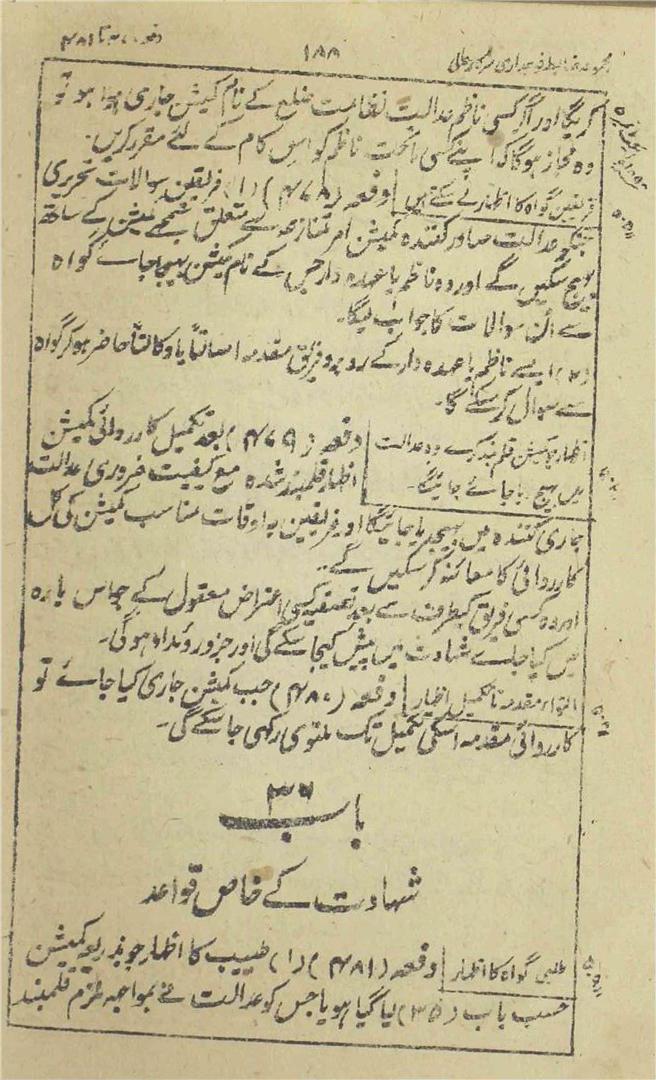 مجموعہ ضابطہ فوجداری سرکار عالی ۱۸۸ دفعہ ۴۷۸ تا ۴۸۱
کریگا اور اگر کسی ناظم عدالت نظامت ضلع کے نام کمیشن جاری ہوا ہو تو
وہ مجاز ہوگا کہ اپنے کسی ماتحت ناظم کو اس کام کے لئے مقرر کریں۔
فریقین گواہ کا اظہار لے سکتے ہیں دفعہ (۴۷۸) (۱) فریقین سوالات تحریری
جنکو عدالت صادر کنندہ کمیشن امر متنازعہ سے متعلق سمجھے کمیشن کے ساتھ
بھیج سکیں گے اور وہ ناظم یا عہدہ دار جس کے نام کمیشن بھیجا جائے گواہ
سے ان سوالات کا جواب لیگا۔
(۲) ایسے ناظم یا عہدہ دار کے روبرو فریق مقدمہ اصالتاً یا وکالتاً حاضر ہو کر گواہ
سے سوال کر سکے گا۔
اظہار جو کمیشن قلمبند کرے وہ عدالت
میں بھیج دیا جائے جائیگا۔
دفعہ (۴۷۹) بعد تکمیل کارروائی کمیشن
اظہار قلمبند شدہ مع کیفیت ضروری عدالت
جاری کنندہ میں بھیجدیا جائیگا اور فریقین بہ اوقات مناسب کمیشن کی کل
کارروائی کا معائنہ کر سکیں گے۔
اور وہ کسی فریق کیطرف سے بعد تصفیہ کسی اعتراض معقول کے جو اس بارہ
میں کیا جائے شہادت میں پیش کیجا سکے گی اور جزو روئداد ہوگی۔
التواء مقدمہ تا تکمیل اظہار دفعہ (۴۸۰) جب کمیشن جاری کیا جائے تو
کارروائی مقدمہ اسکی تکمیل تک ملتوی رکھی جا سکے گی۔
باب ۳۶
شہادت کے خاص قواعد
طبی گواہ کا اظہار دفعہ (۴۸۱) (۱) طبیب کا اظہار جو بذریعہ کمیشن
حسب باب (۳۵) لیا گیا ہو یا جس کو عدالت نے بمواجہہ ملزم قلمبند